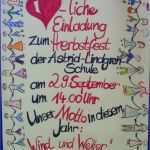 -liche
Einladung
zum Herbstfest
der Astrid-Lindgren-
Schule
am 29. September
um 14.00 Uhr
Unser Motto in diesem
Jahr:
Wind und Wetter